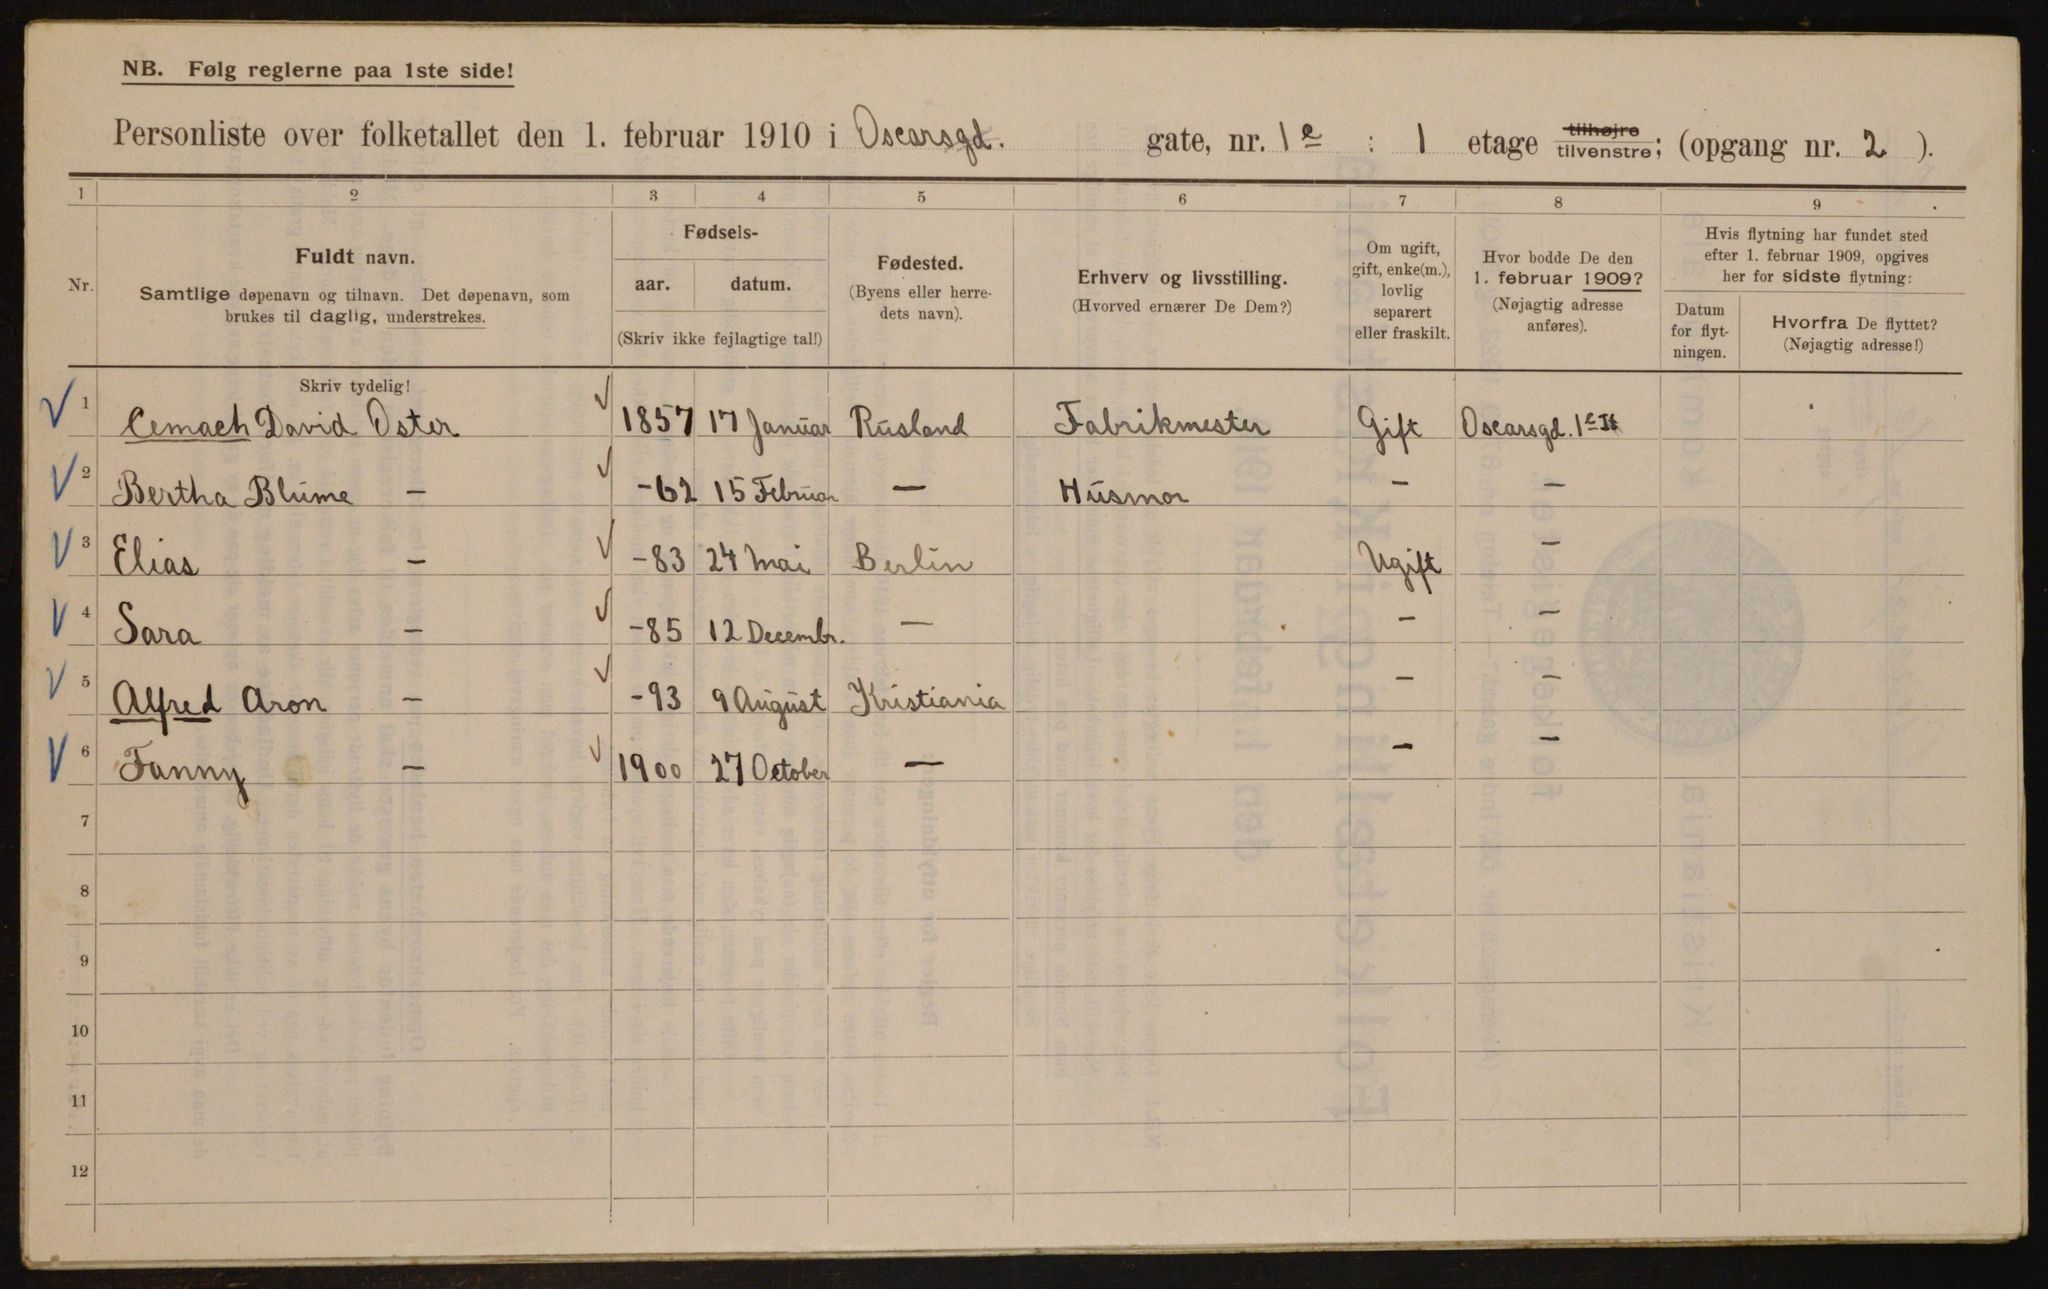 NB. Følg reglerne paa 1ste side!
Personliste over folketallet den 1. februar 1910 i Oscarsgd. gate, nr. 1e : 1 etage tilhøjre tilvenstre; (opgang nr. 2 ).
1 2 3 4 5 6 7 8 9
Nr.
Fuldt navn.
Samtlige døpenavn og tilnavn. Det døpenavn, som
brukes til daglig, understrekes.
Fødsels-
aar. datum.
(Skriv ikke fejlagtige tal!)
Fødested.
(Byens eller herre-
dets navn).
Erhverv og livsstilling.
(Hvorved ernærer De Dem?)
Om ugift,
gift, enke(m.),
lovlig
separert
eller fraskilt.
Hvor bodde De den
1. februar 1909?
(Nøjagtig adresse
anføres).
Hvis flytning har fundet sted
efter 1. februar 1909, opgives
her for sidste flytning:
Datum
for flyt-
ningen.
Hvorfra De flyttet?
(Nøjagtig adresse!)
Skriv tydelig!
1 Cemach David Oster 1857 17 Januar Rusland Fabrikmester Gift Oscarsgd. 1e It
2 Bertha Blume — -62 15 Februar — Husmor — —
3 Elias — -83 24 Mai Berlin Ugift —
4 Sara — -85 12 Decembr. — — —
5 Alfred Aron — -93 9 August Kristiania — —
6 Fanny — 1900 27 October — — —
7
8
9
10
11
12